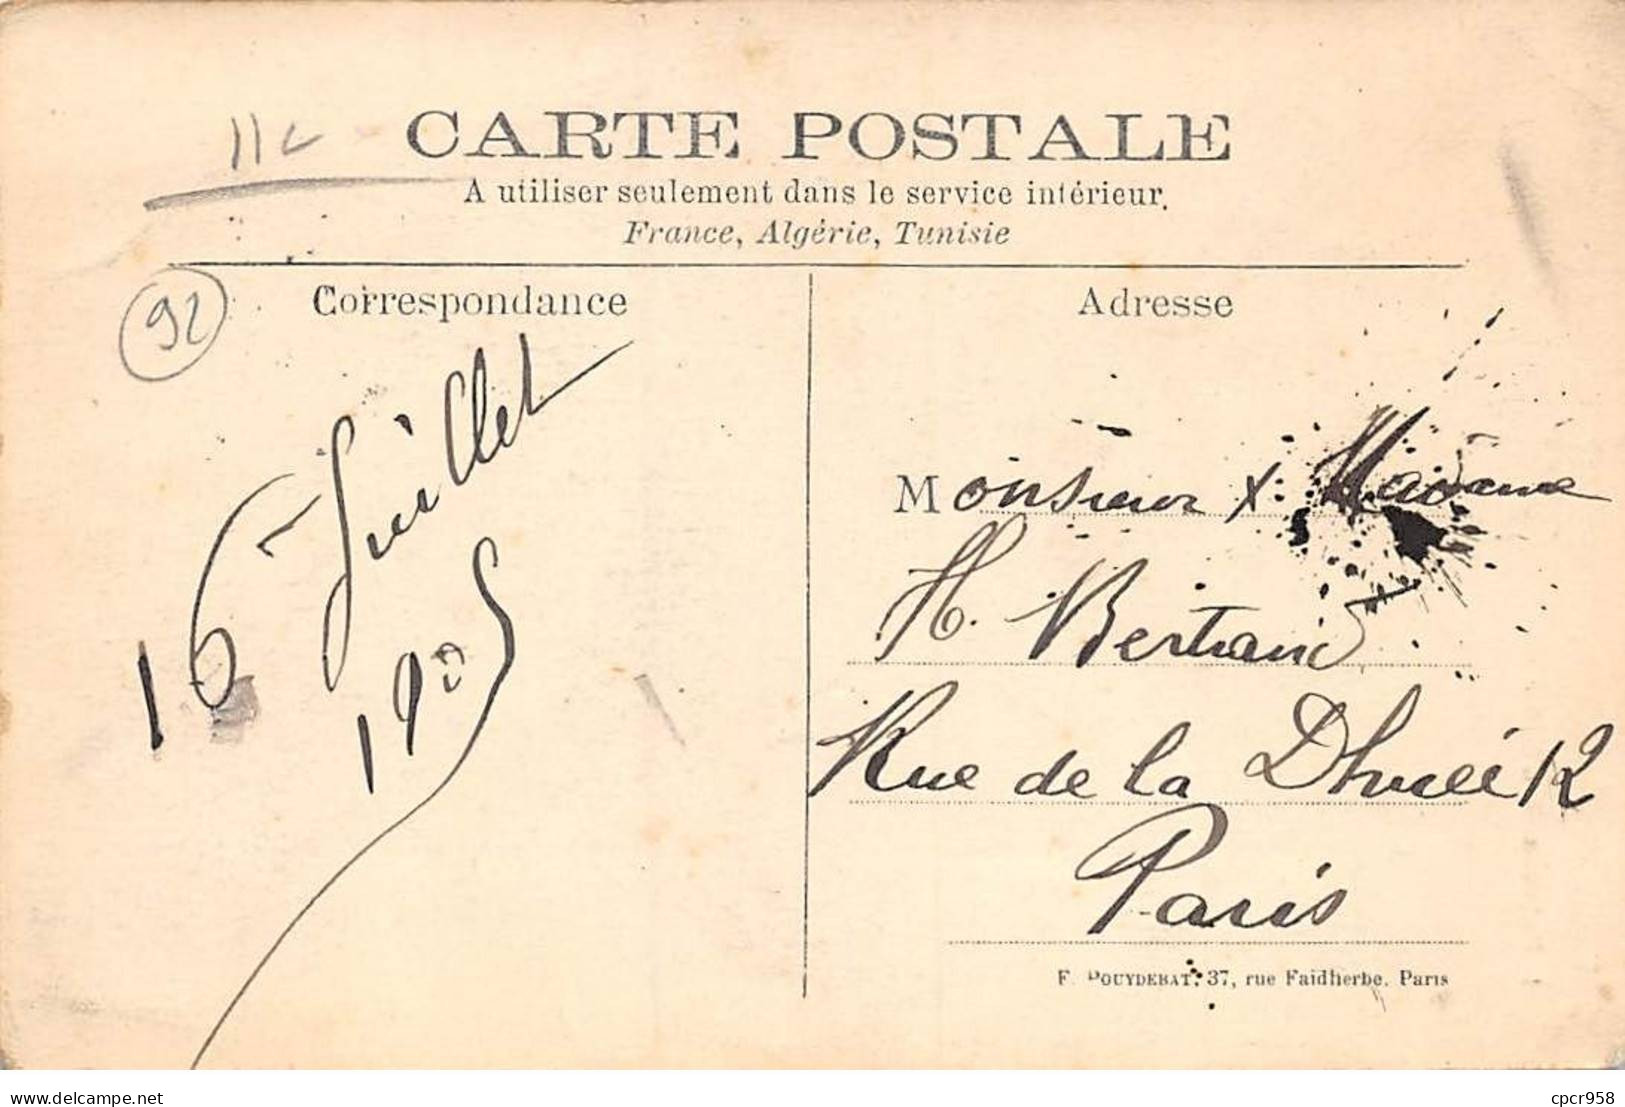 11c
CARTE POSTALE
A utiliser seulement dans le service intérieur.
France, Algérie, Tunisie
92
Correspondance
Adresse
16 Juillet
1905
Monsieur & Madame
H. Bertrand
Rue de la Dhuée 12
Paris
F. POUYDEBAT, 37, rue Faidherbe, Paris
delcampe.net
cpcr958